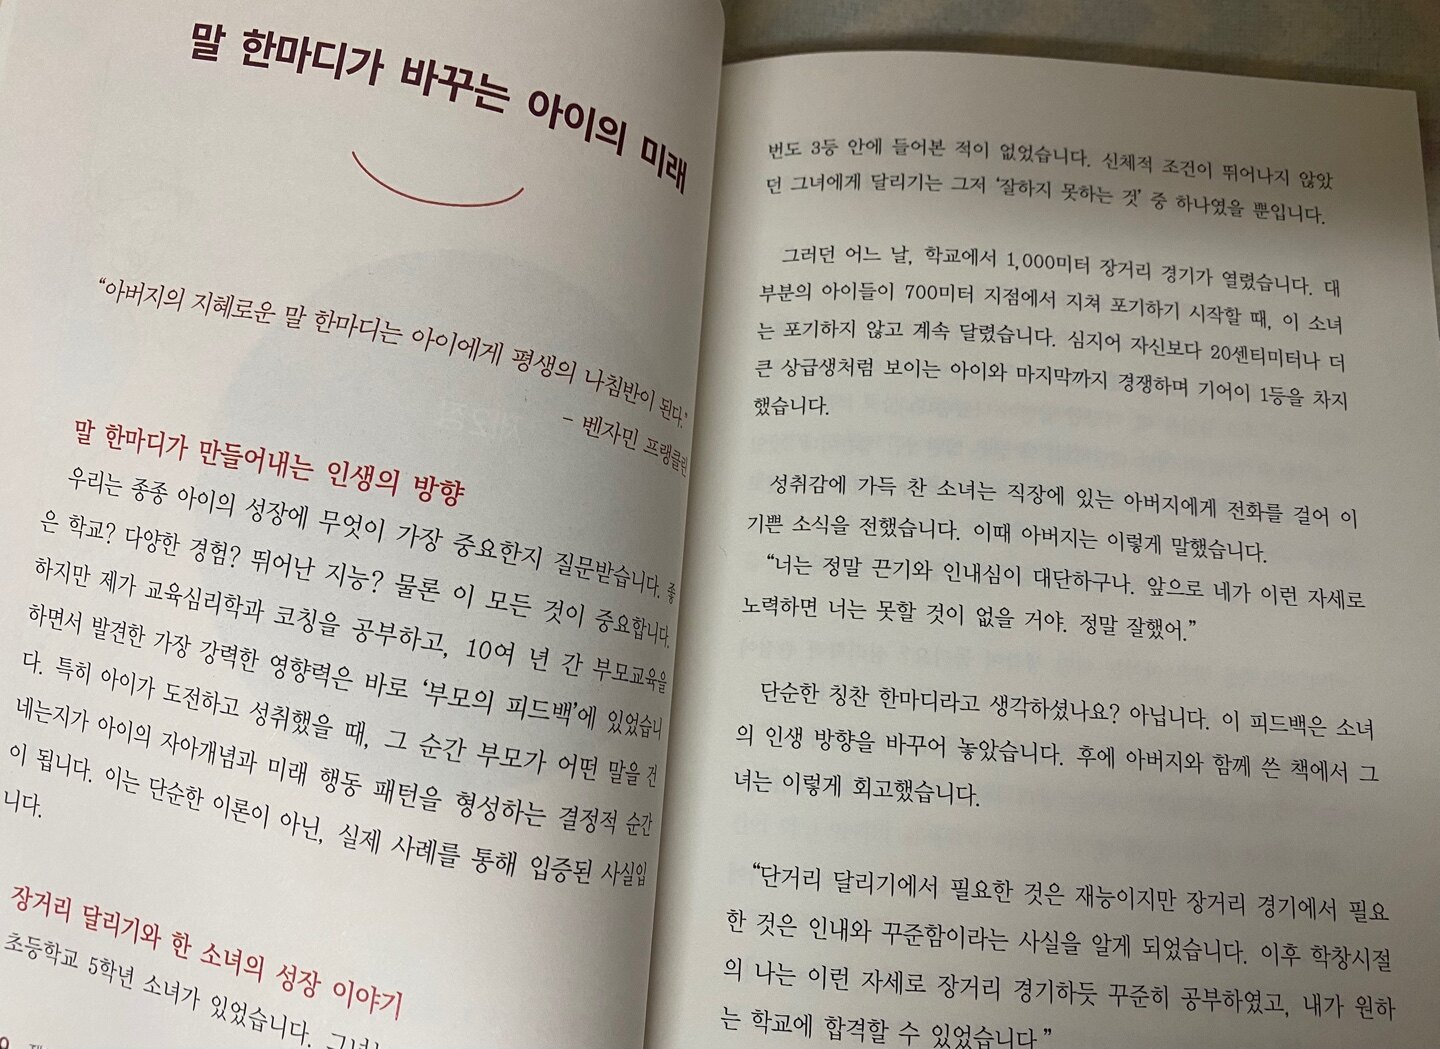 말 한마디가 바꾸는 아이의 미래
“아버지의 지혜로운 말 한마디는 아이에게 평생의 나침반이 된다.”
- 벤자민 프랭클린
말 한마디가 만들어내는 인생의 방향
우리는 종종 아이의 성장에 무엇이 가장 중요한지 질문받습니다. 좋
은 학교? 다양한 경험? 뛰어난 지능? 물론 이 모든 것이 중요합니다.
하지만 제가 교육심리학과 코칭을 공부하고, 10여 년 간 부모교육을
하면서 발견한 가장 강력한 영향력은 바로 ‘부모의 피드백’에 있었습니
다. 특히 아이가 도전하고 성취했을 때, 그 순간 부모가 어떤 말을 건
네는지가 아이의 자아개념과 미래 행동 패턴을 형성하는 결정적 순간
이 됩니다. 이는 단순한 이론이 아닌, 실제 사례를 통해 입증된 사실입
니다.
장거리 달리기와 한 소녀의 성장 이야기
초등학교 5학년 소녀가 있었습니다.
번도 3등 안에 들어본 적이 없었습니다. 신체적 조건이 뛰어나지 않았
던 그녀에게 달리기는 그저 ‘잘하지 못하는 것’ 중 하나였을 뿐입니다.
그러던 어느 날, 학교에서 1,000미터 장거리 경기가 열렸습니다. 대
부분의 아이들이 700미터 지점에서 지쳐 포기하기 시작할 때, 이 소녀
는 포기하지 않고 계속 달렸습니다. 심지어 자신보다 20센티미터나 더
큰 상급생처럼 보이는 아이와 마지막까지 경쟁하며 기어이 1등을 차지
했습니다.
성취감에 가득 찬 소녀는 직장에 있는 아버지에게 전화를 걸어 이
기쁜 소식을 전했습니다. 이때 아버지는 이렇게 말했습니다.
“너는 정말 끈기와 인내심이 대단하구나. 앞으로 네가 이런 자세로
노력하면 너는 못할 것이 없을 거야. 정말 잘했어.”
단순한 칭찬 한마디라고 생각하셨나요? 아닙니다. 이 피드백은 소녀
의 인생 방향을 바꾸어 놓았습니다. 후에 아버지와 함께 쓴 책에서 그
녀는 이렇게 회고했습니다.
“단거리 달리기에서 필요한 것은 재능이지만 장거리 경기에서 필요
한 것은 인내와 꾸준함이라는 사실을 알게 되었습니다. 이후 학창시절
의 나는 이런 자세로 장거리 경기하듯 꾸준히 공부하였고, 내가 원하
는 학교에 합격할 수 있었습니다”